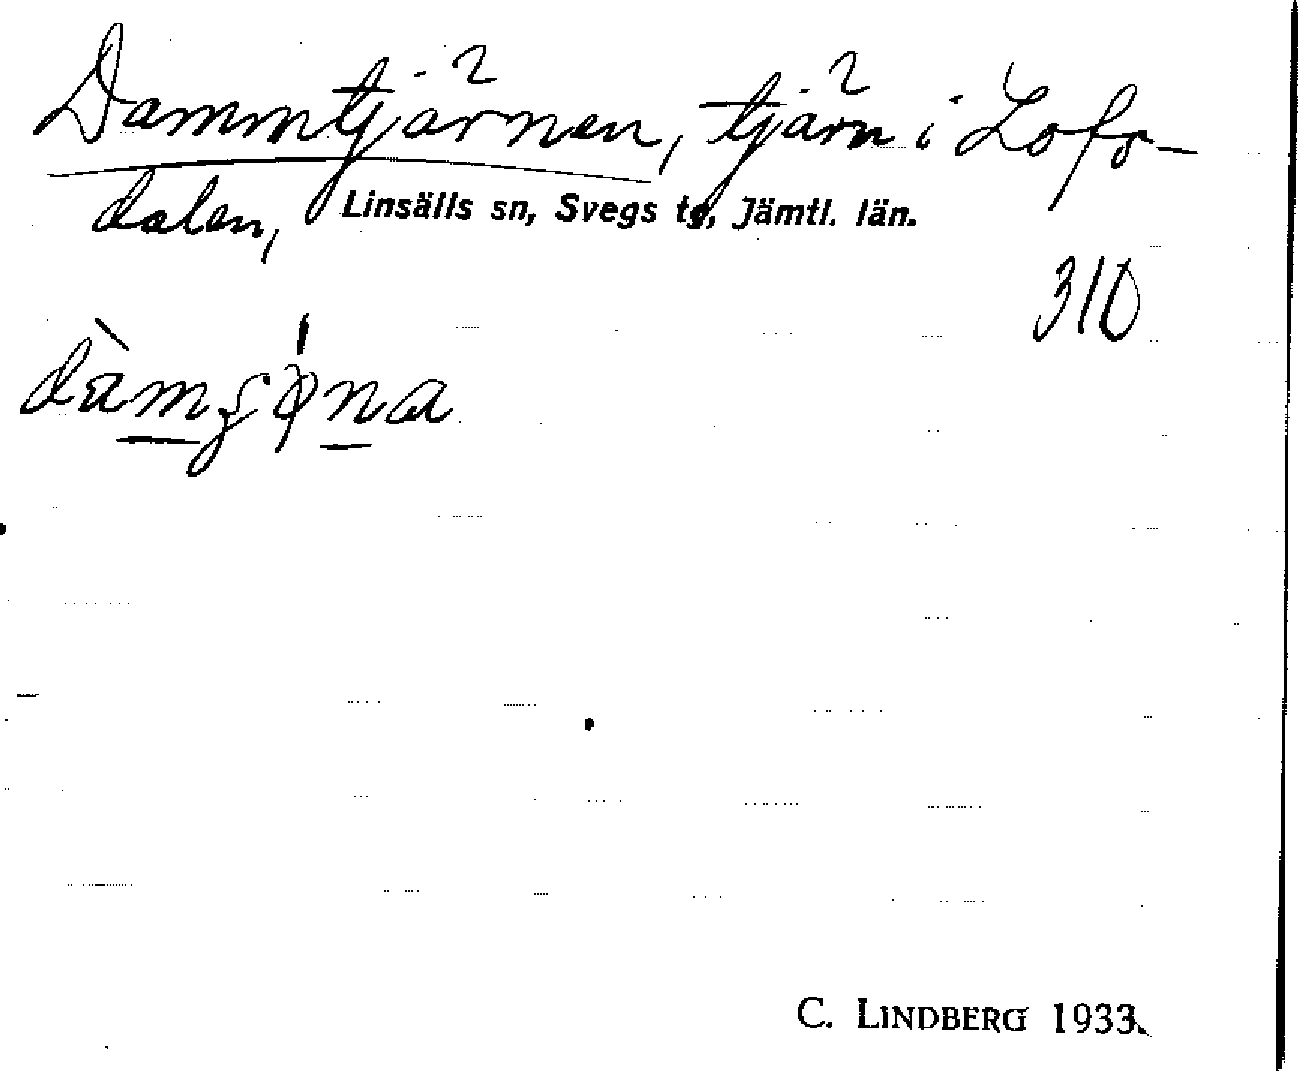 Dammtjärnen, tjärn i Lofs-
dalen, Linsälls sn, Svegs tg, Jämtl. län.
310
C. LINDBERG 1933.